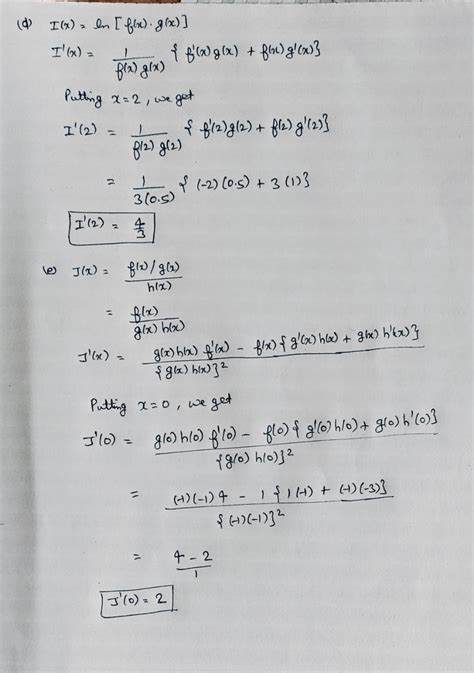 (d) I(x) = ln [f(x). g(x)]
I'(x) = 1/(f(x) g(x)) { f'(x) g(x) + f(x) g'(x)}
Putting x=2, we get
I'(2) = 1/(f(2) g(2)) { f'(2) g(2) + f(2) g'(2)}
= 1/(3(0.5)) { (-2) (0.5) + 3 (1)}
I'(2) = 4/3
(e) J(x) = (f(x) / g(x))/h(x)
= f(x)/(g(x) h(x))
J'(x) = (g(x) h(x) f'(x) - f(x) { g'(x) h(x) + g(x) h'(x)})/{g(x) h(x)}²
Putting x=0, we get
J'(0) = (g(0) h(0) f'(0) - f(0) { g'(0) h(0) + g(0) h'(0)})/{g(0) h(0)}²
= ((-1)(-1) 4 - 1 { 1 (-1) + (-1)(-3)})/{(-1)(-1)}²
= (4 - 2)/1
J'(0) = 2